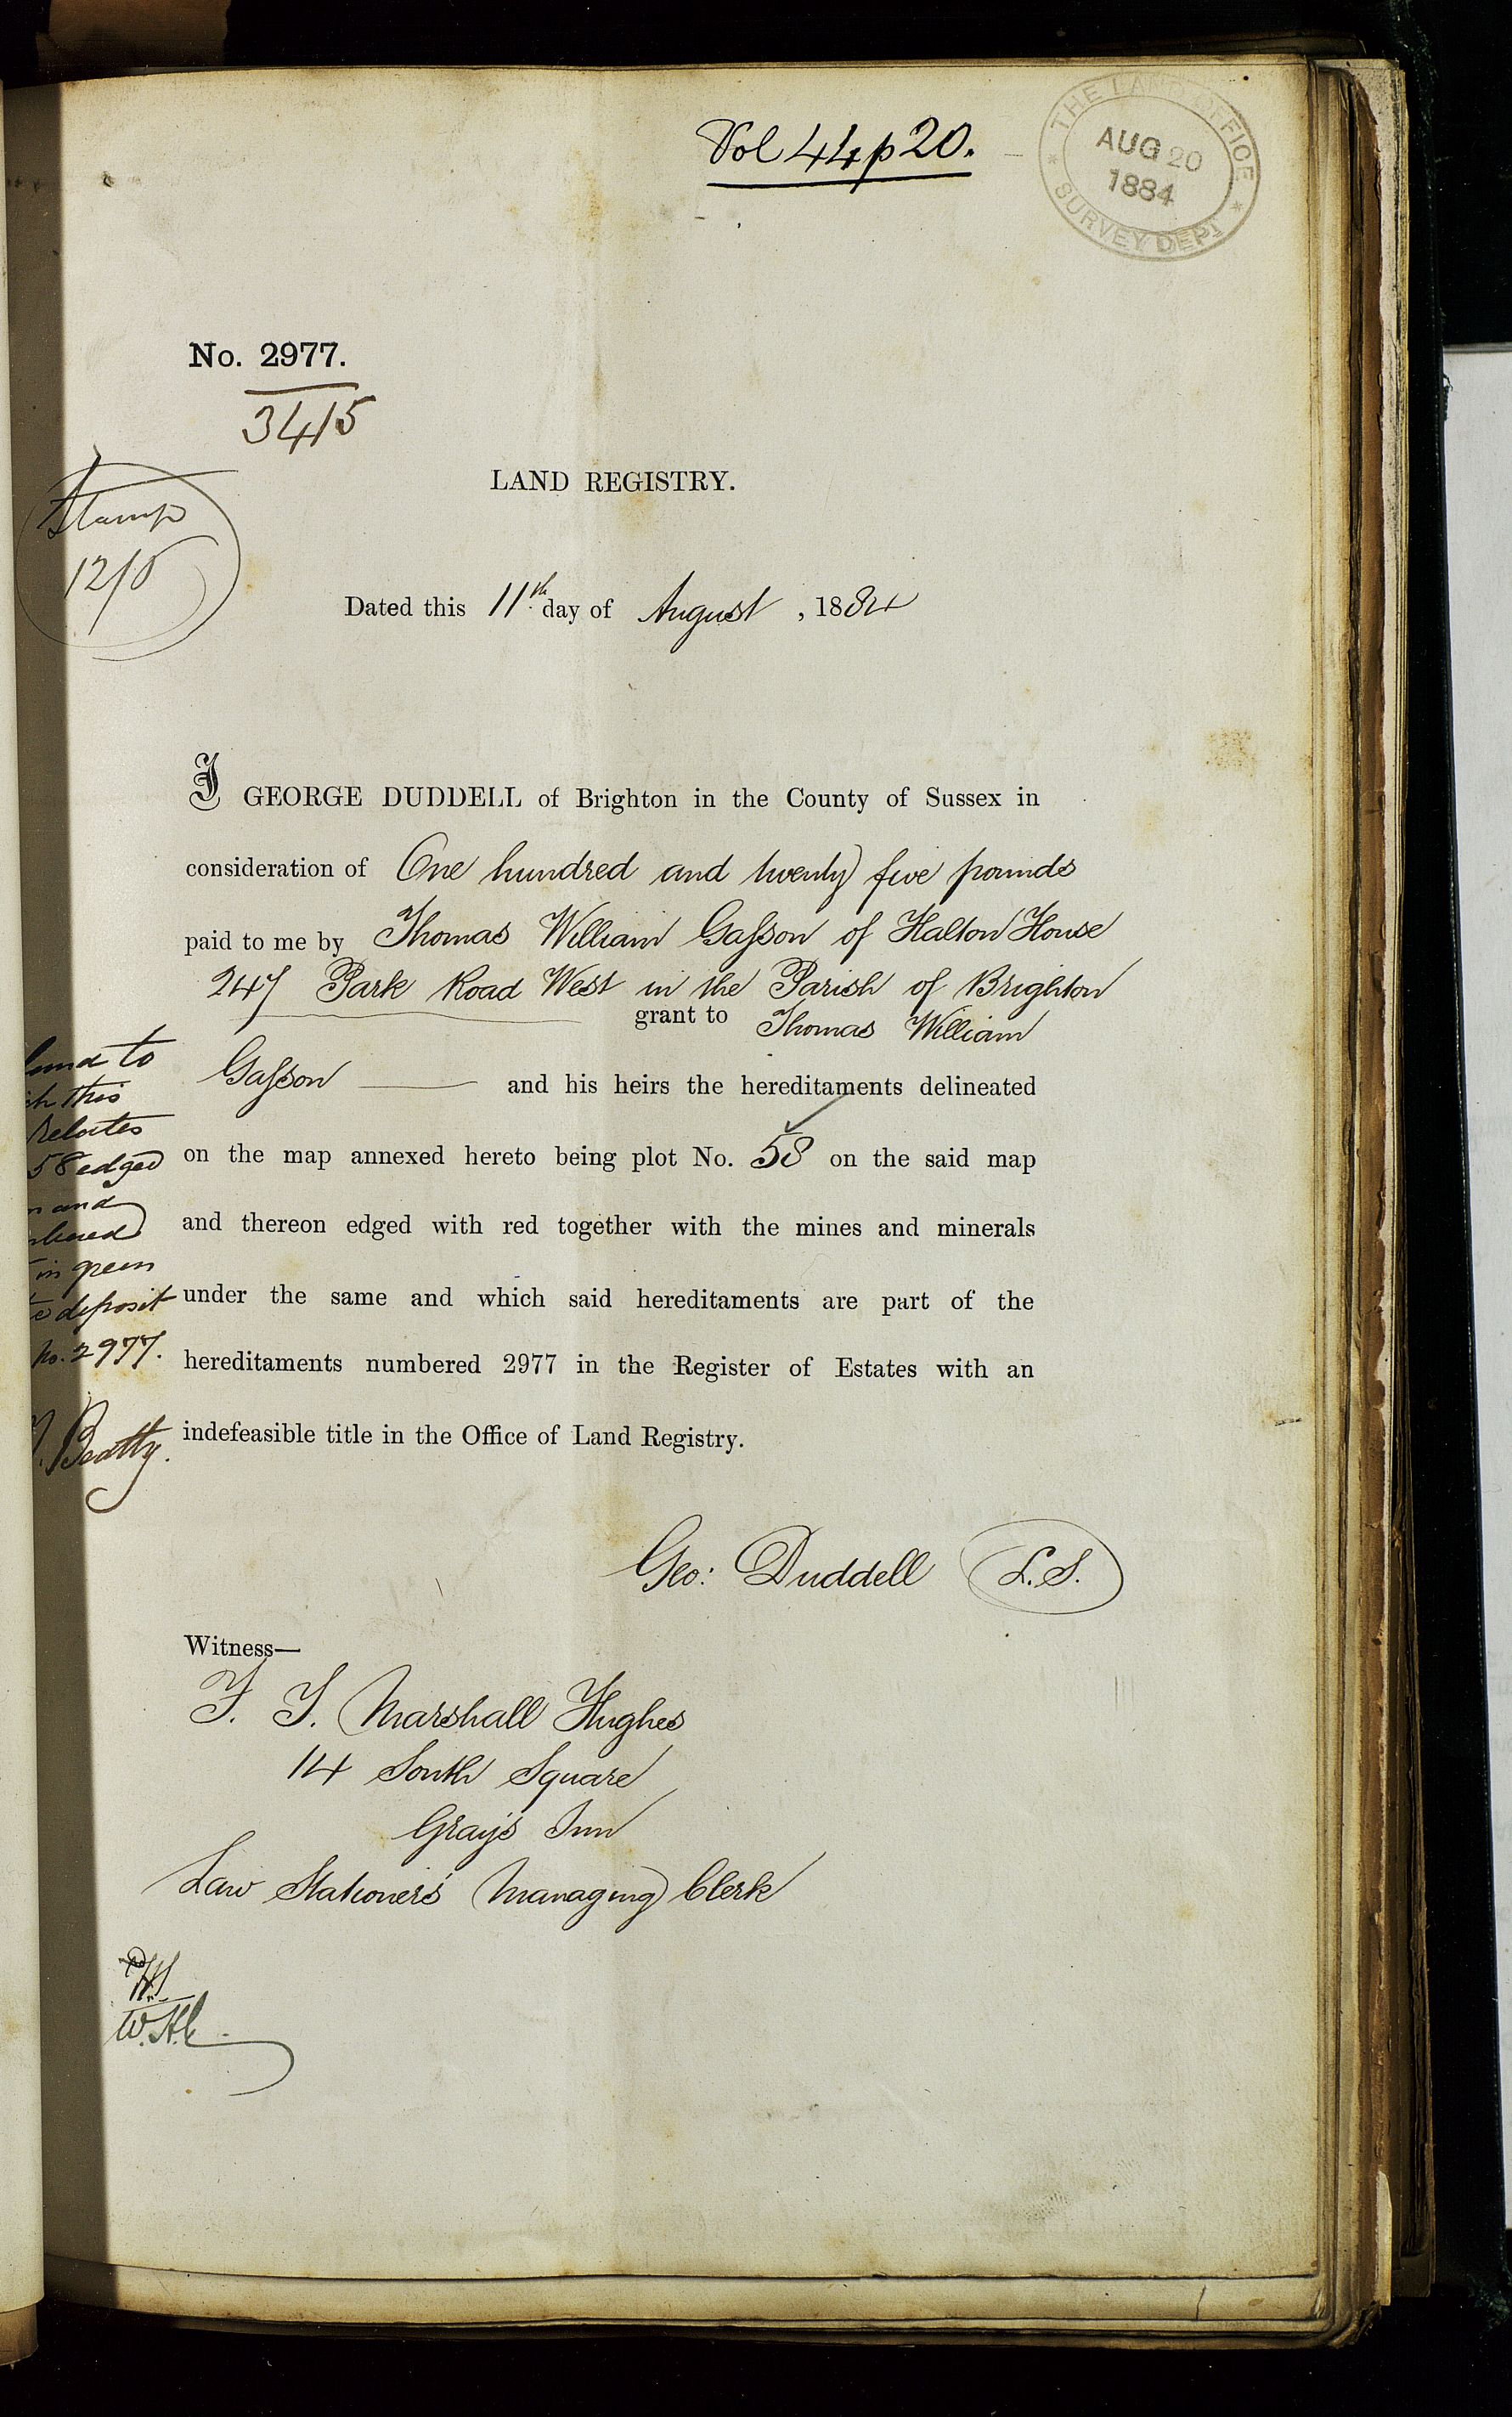 Vol 44 p 20.
THE LAND OFFICE
AUG 20
1884
SURVEY DEPT
No. 2977.
3415
Stamp
12/6
LAND REGISTRY.
Dated this 11th day of August, 1884
I GEORGE DUDDELL of Brighton in the County of Sussex in
consideration of One hundred and twenty five pounds
paid to me by Thomas William Gaſson of Halton House
247 Park Road West in the Parish of Brighton
grant to Thomas William
Gaſson and his heirs the hereditaments delineated
on the map annexed hereto being plot No. 58 on the said map
and thereon edged with red together with the mines and minerals
under the same and which said hereditaments are part of the
hereditaments numbered 2977 in the Register of Estates with an
indefeasible title in the Office of Land Registry.
to
this
relates
58 edged
and
in green
deposit
No. 2977.
Beatty.
Geo: Duddell L.S.
Witness—
F. J. Marshall Hughes
14 South Square
Gray's Inn
Law Stationer's Managing Clerk